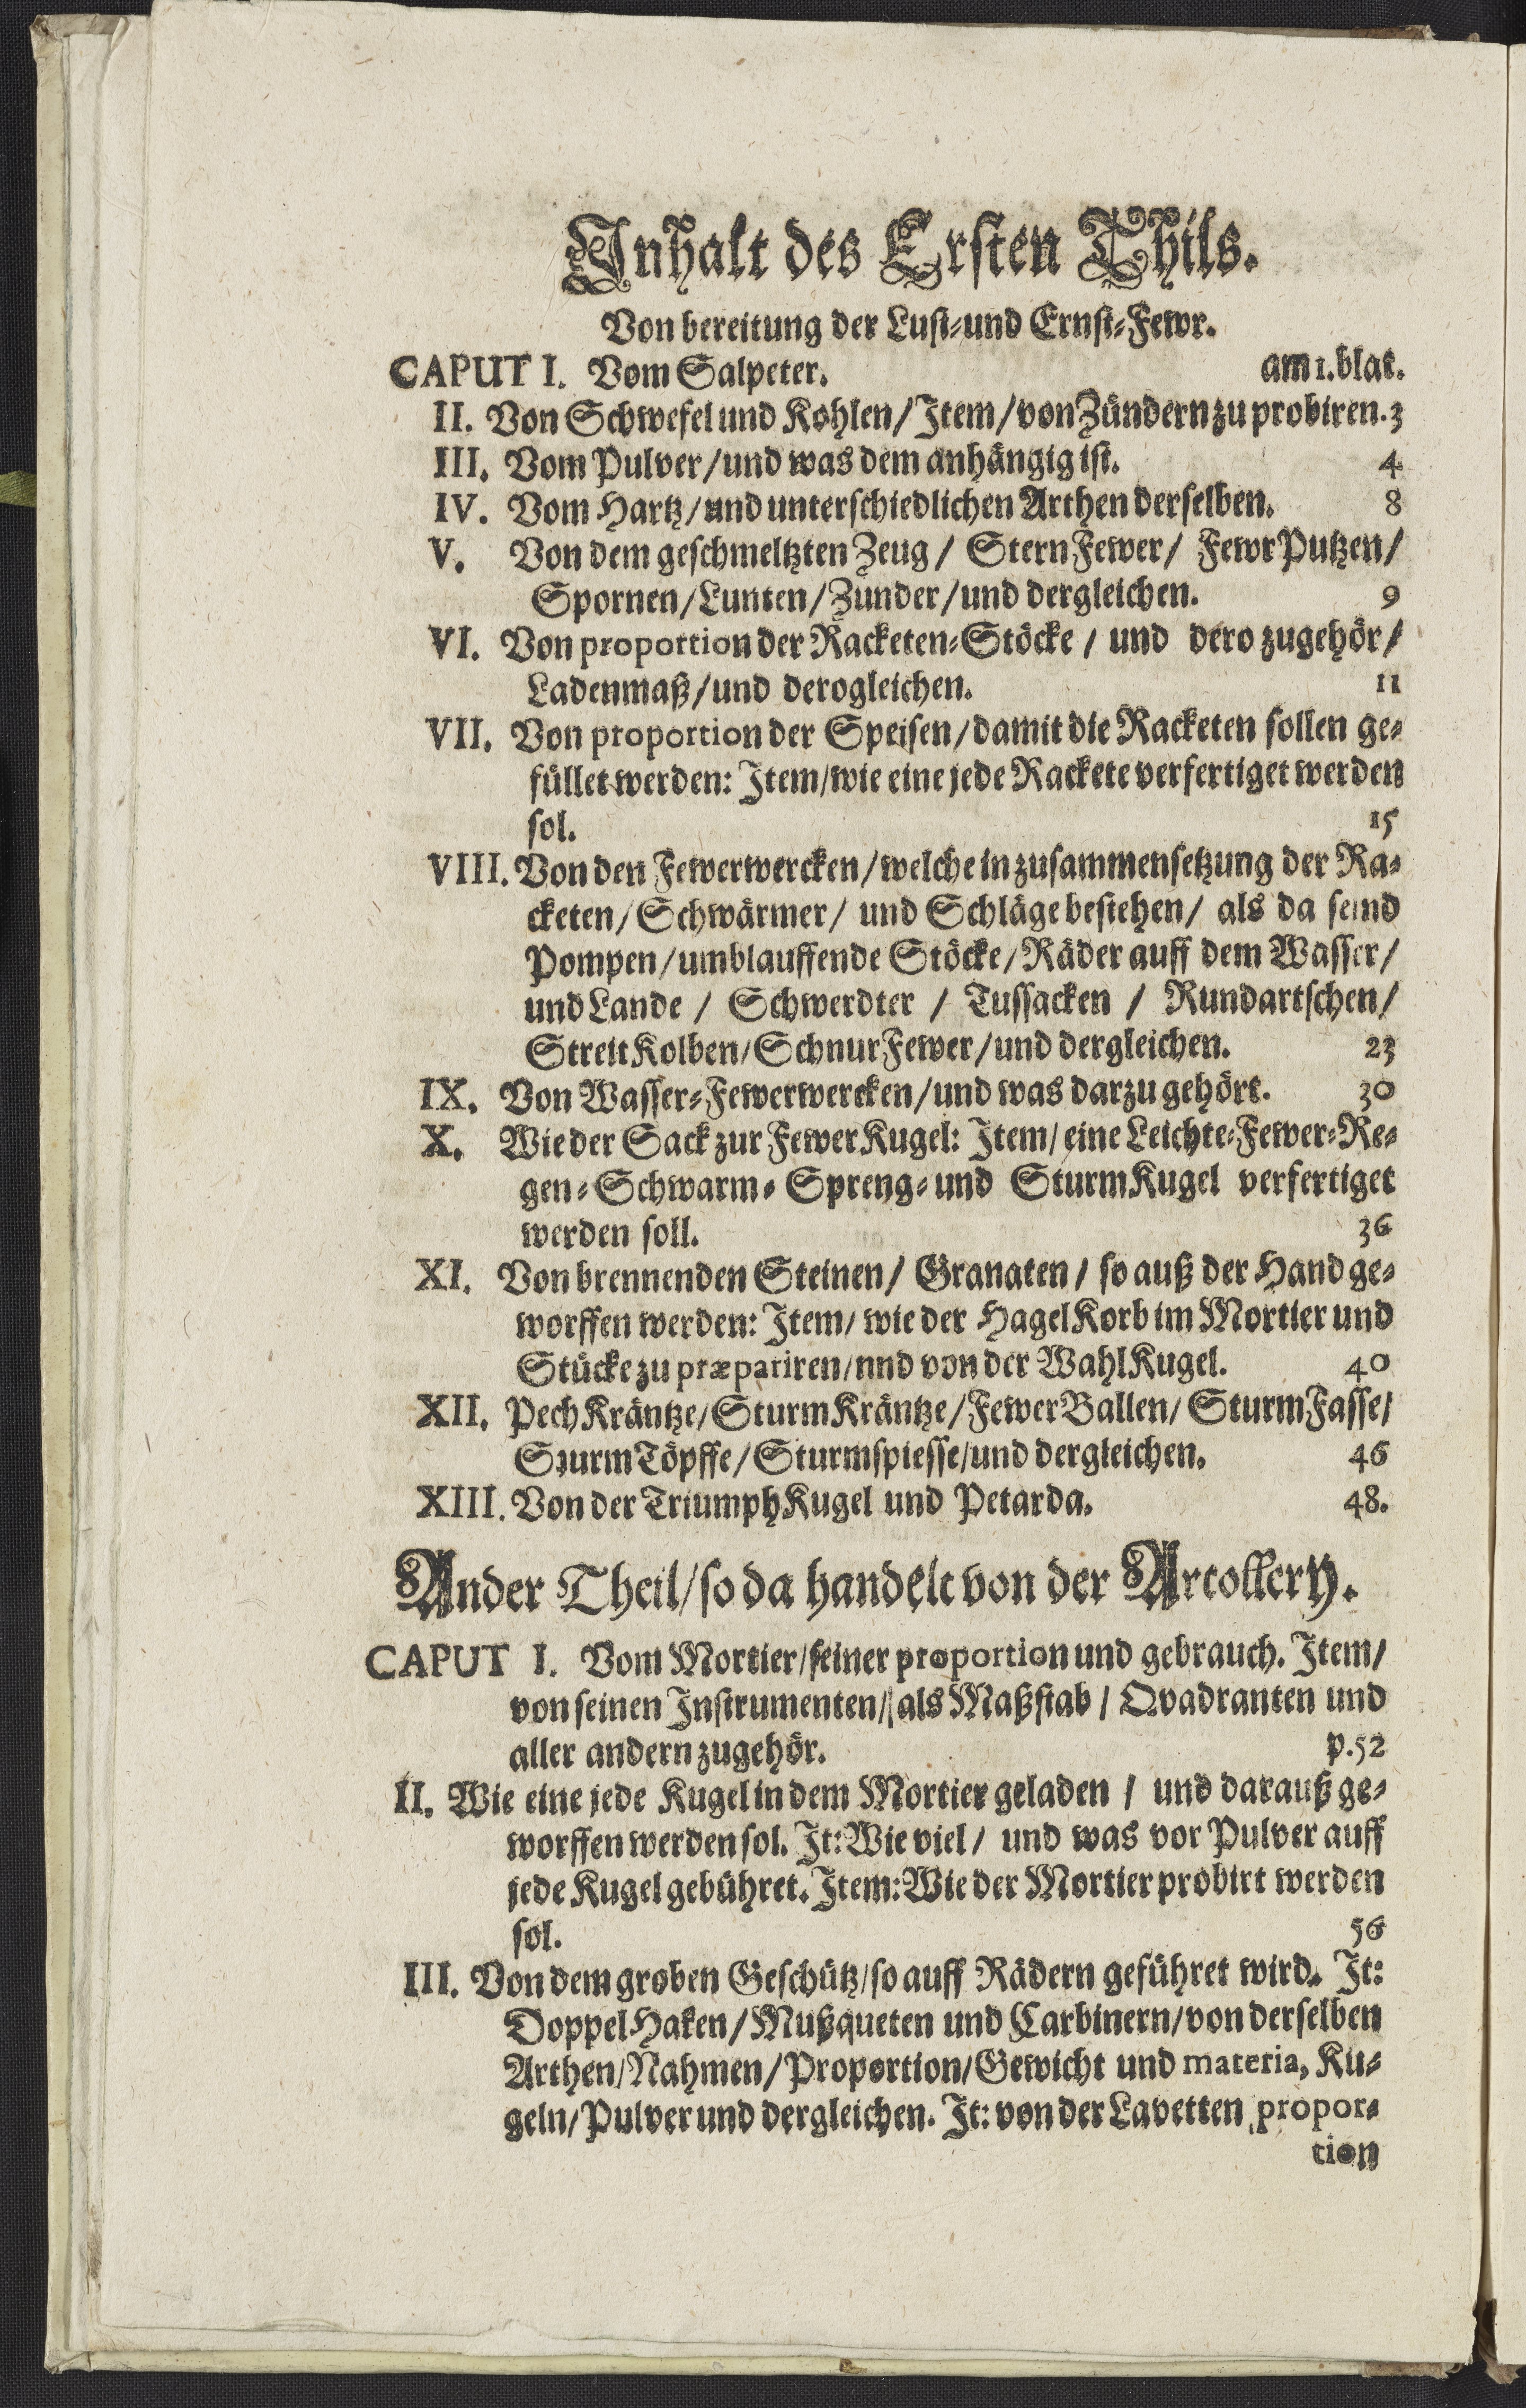 Inhalt des Ersten Thils.
Von bereitung der Lust-und Ernst-Fewr.
CAPUT I. Vom Salpeter. am 1. blat.
II. Von Schwefel und Kohlen/ Item/ von Zündern zu probiren. 3
III. Vom Pulver/ und was dem anhängig ist. 4
IV. Vom Hartz/ und unterschiedlichen Arthen derselben. 8
V. Von dem geschmeltzten Zeug/ SternFewer/ FewrPutzen/
Spornen/ Lunten/ Zunder/ und dergleichen. 9
VI. Von proportion der Racketen-Stöcke/ und dero zugehör/
Ladenmaß/ und derogleichen. 11
VII. Von proportion der Speisen/ damit die Racketen sollen ge-
füllet werden: Item/ wie eine jede Rackete verfertiget werden
sol. 15
VIII. Von den Fewerwercken/ welche in zusammensetzung der Ra-
cketen/ Schwärmer/ und Schläge bestehen/ als da seind
Pompen/ umblauffende Stöcke/ Räder auff dem Wasser/
und Lande/ Schwerdter/ Tussacken/ Rundartschen/
StreitKolben/ SchnurFewer/ und dergleichen. 23
IX. Von Wasser-Fewerwercken/ und was darzu gehört. 30
X. Wie der Sack zur FewerKugel: Item/ eine Leichte-Fewer-Re-
gen-Schwarm-Spreng-und SturmKugel verfertiget
werden soll. 36
XI. Von brennenden Steinen/ Granaten/ so auß der Hand ge-
worffen werden: Item/ wie der HagelKorb im Mortier und
Stücke zu præpariren/ nnd von der WahlKugel. 40
XII. PechKräntze/ SturmKräntze/ FewerBallen/ SturmFasse/
SturmTöpffe/ Sturmspiesse/ und dergleichen. 46
XIII. Von der TriumphKugel und Petarda. 48.
Ander Theil/ so da handelt von der Artollery.
CAPUT I. Vom Mortier/ seiner proportion und gebrauch. Item/
von seinen Instrumenten/ als Maßstab/ Qvadranten und
aller andern zugehör. p. 52
II. Wie eine jede Kugel in dem Mortier geladen/ und darauß ge-
worffen werden sol. It: Wie viel/ und was vor Pulver auff
jede Kugel gebühret. Item: Wie der Mortier probirt werden
sol. 56
III. Von dem groben Geschütz/ so auff Rädern geführet wird. It:
DoppelHaken/ Mußqueten und Carbinern/ von derselben
Arthen/ Nahmen/ Proportion/ Gewicht und materia, Ku-
geln/ Pulver und dergleichen. It: von der Lavetten propor-
tion